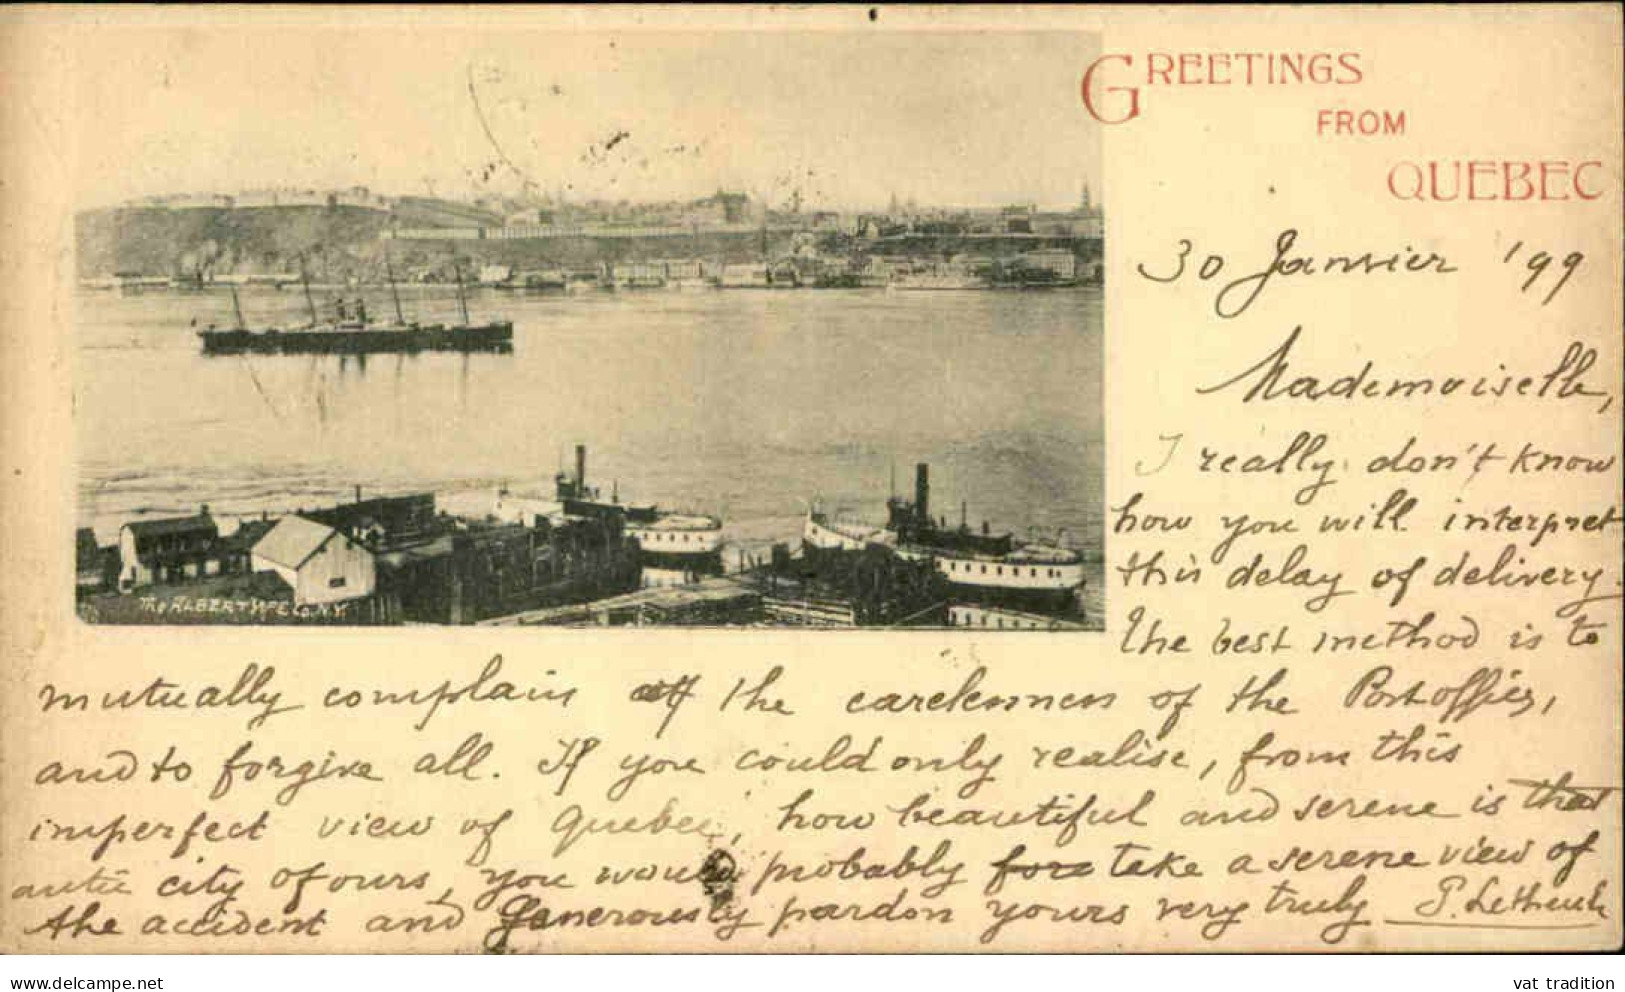 GREETINGS
FROM
QUEBEC
30 Janvier '99
Mademoiselle,
I really don't know
how you will interpret
this delay of delivery.
The best method is to
mutually complain of the carelessness of the Postoffices,
and to forgive all. If you could only realise, from this
imperfect view of Quebec, how beautiful and serene is that
city of ours, you would probably take a serene view of
the accident and generously pardon yours very truly
The ALBERTYPE Co. N.Y.
www.delcampe.net
vat tradition